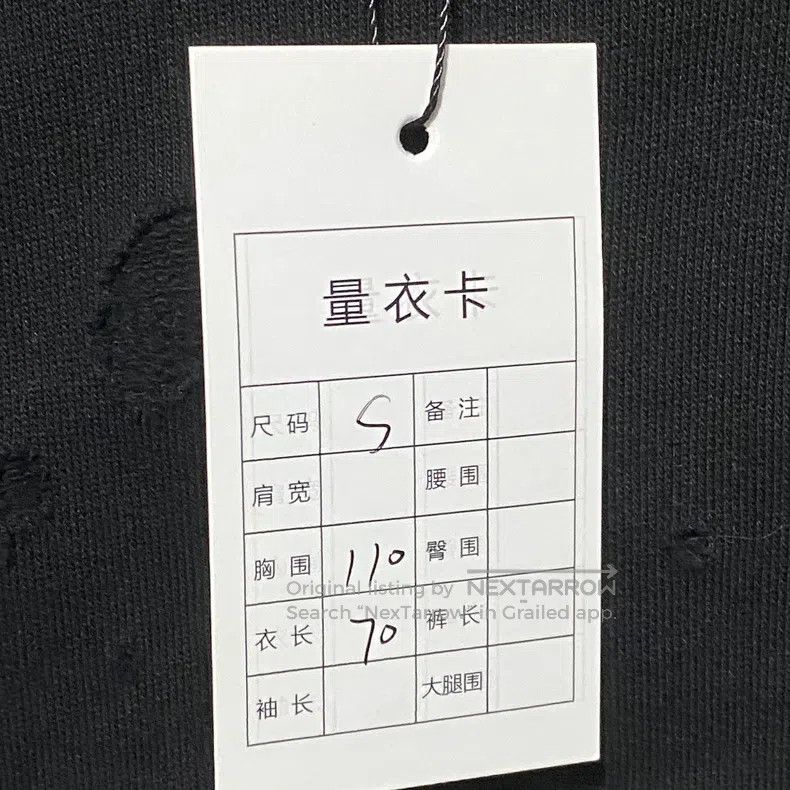 量衣卡
尺码 S 备注
肩宽 腰围
胸围 110 臀围
Original listing by NEXTARROW
Search "NexTarrow" in Grailed app.
衣长 70 裤长
袖长 大腿围